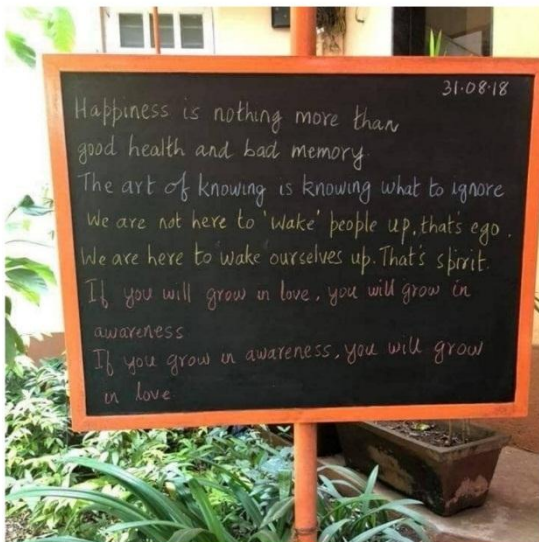 31.08.18
Happiness is nothing more than
good health and bad memory.
The art of knowing is knowing what to ignore
We are not here to 'wake' people up, that's ego.
We are here to wake ourselves up. That's spirit.
If you will grow in love, you will grow in
awareness
If you grow in awareness, you will grow
in love